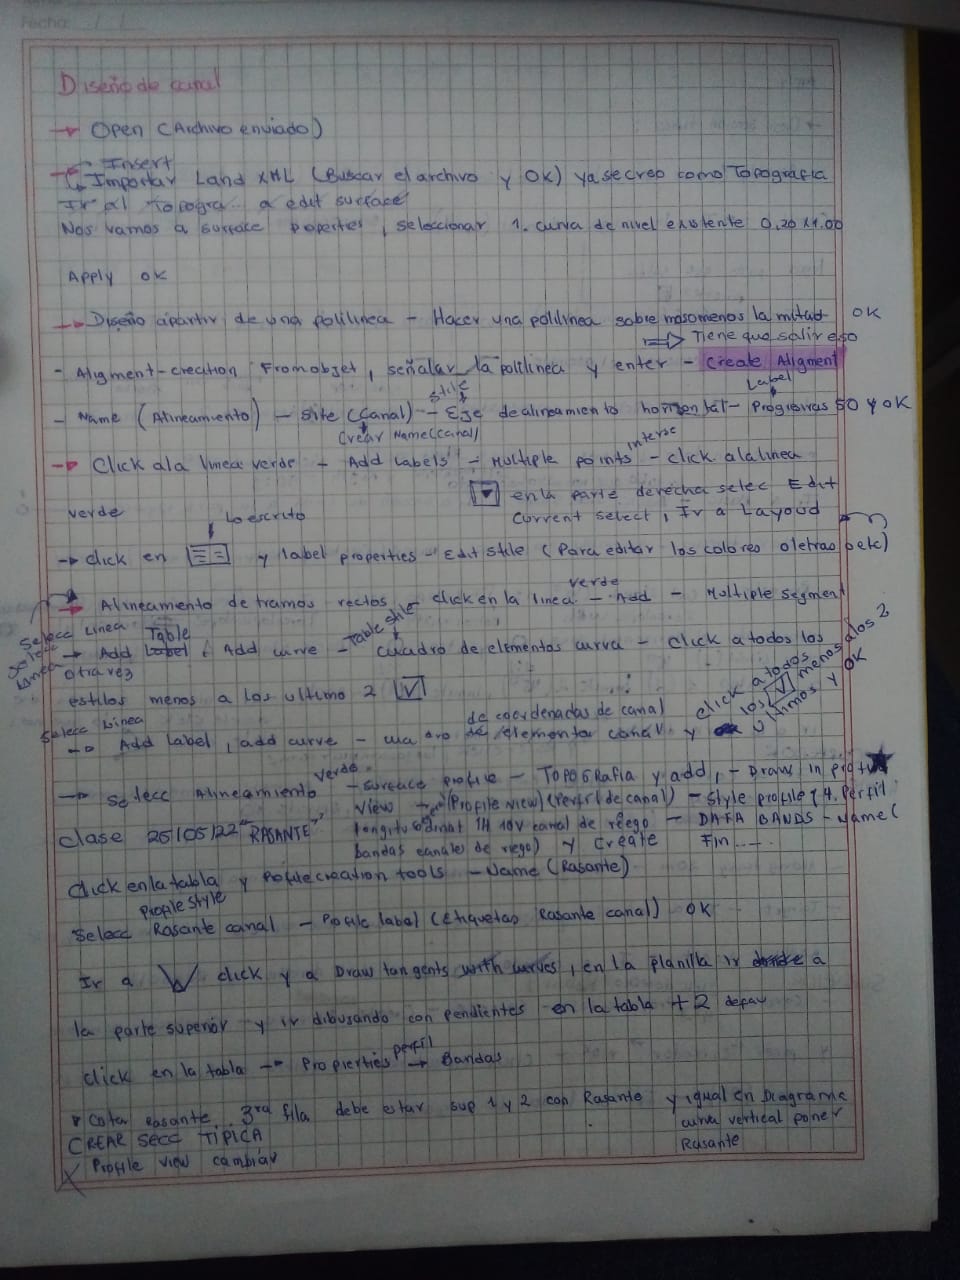 Fecha: / /
Diseño de canal
→ Open (Archivo enviado)
Insert
Importar Land XML (Buscar el archivo y OK) ya se creo como Topografia
Ir al Topogra.. a edit surface
Nos vamos a surface poperties, seleccionar 1. curva de nivel existente 0.20 x 1.00
Apply ok
→ Diseño apartir de una polilinea - Hacer una polilinea sobre masomenos la mitad OK
⇒ Tiene que salir eso
- Aligment-creation From objet, señalar la polilinea y enter - Create Aligment
stile Label
- Name (Alineamiento) - site (Canal) - Eje de alineamiento horizontal - Progresivas 50 y OK
Crear Name(canal)
interse
→ Click ala linea verde - Add Labels - Multiple points - click ala linea
verde en la parte derecha selec Edit
Lo escrito current select, Ir a Layoud
→ click en y label properties - Edit stile (Para editar los colores o letras etc)
verde
→ Alineamento de tramos rectos - click en la linea - Add - Multiple segment
Selecc Linea Table Table stile
→ Add Label, Add curve - cuadro de elementos curva - Click a todos los
Selecc linea otra vez
estilos menos a los ultimo 2 ☑
click a todos los ☑ menos alos 2 ultimos y OK
Selecc Linea de coordenadas de canal
→ Add Label, add curve - de elementos canal y
verde
→ Selecc Alineamiento - surface profile - TOPOGRafia y add, - Draw in profile
view → (Profile view) (Perfil de canal) - Style profile 14. Perfil
Clase 25/05/22 "RASANTE" 1H 10V canal de riego - DATA BANDS - Name (
bandas canales de riego) y Create Fin.....
Click en la tabla y Pofile creation tools - Name (Rasante)
Profile style
Selecc Rasante canal - Pofile label (Etiquetas Rasante canal) OK
Ir a click y a Draw tangents with curves, en la planilla ir a
la parte superior y ir dibujando con pendientes en la tabla + 2
perfil
click en la tabla → Propierties → Bandas
Cota Rasante. 3ra fila debe estar sup 1 y 2 con Rasante y igual en Diagrama
curva vertical poner
Rasante
CREAR SECC TIPICA
Profile view cambiar